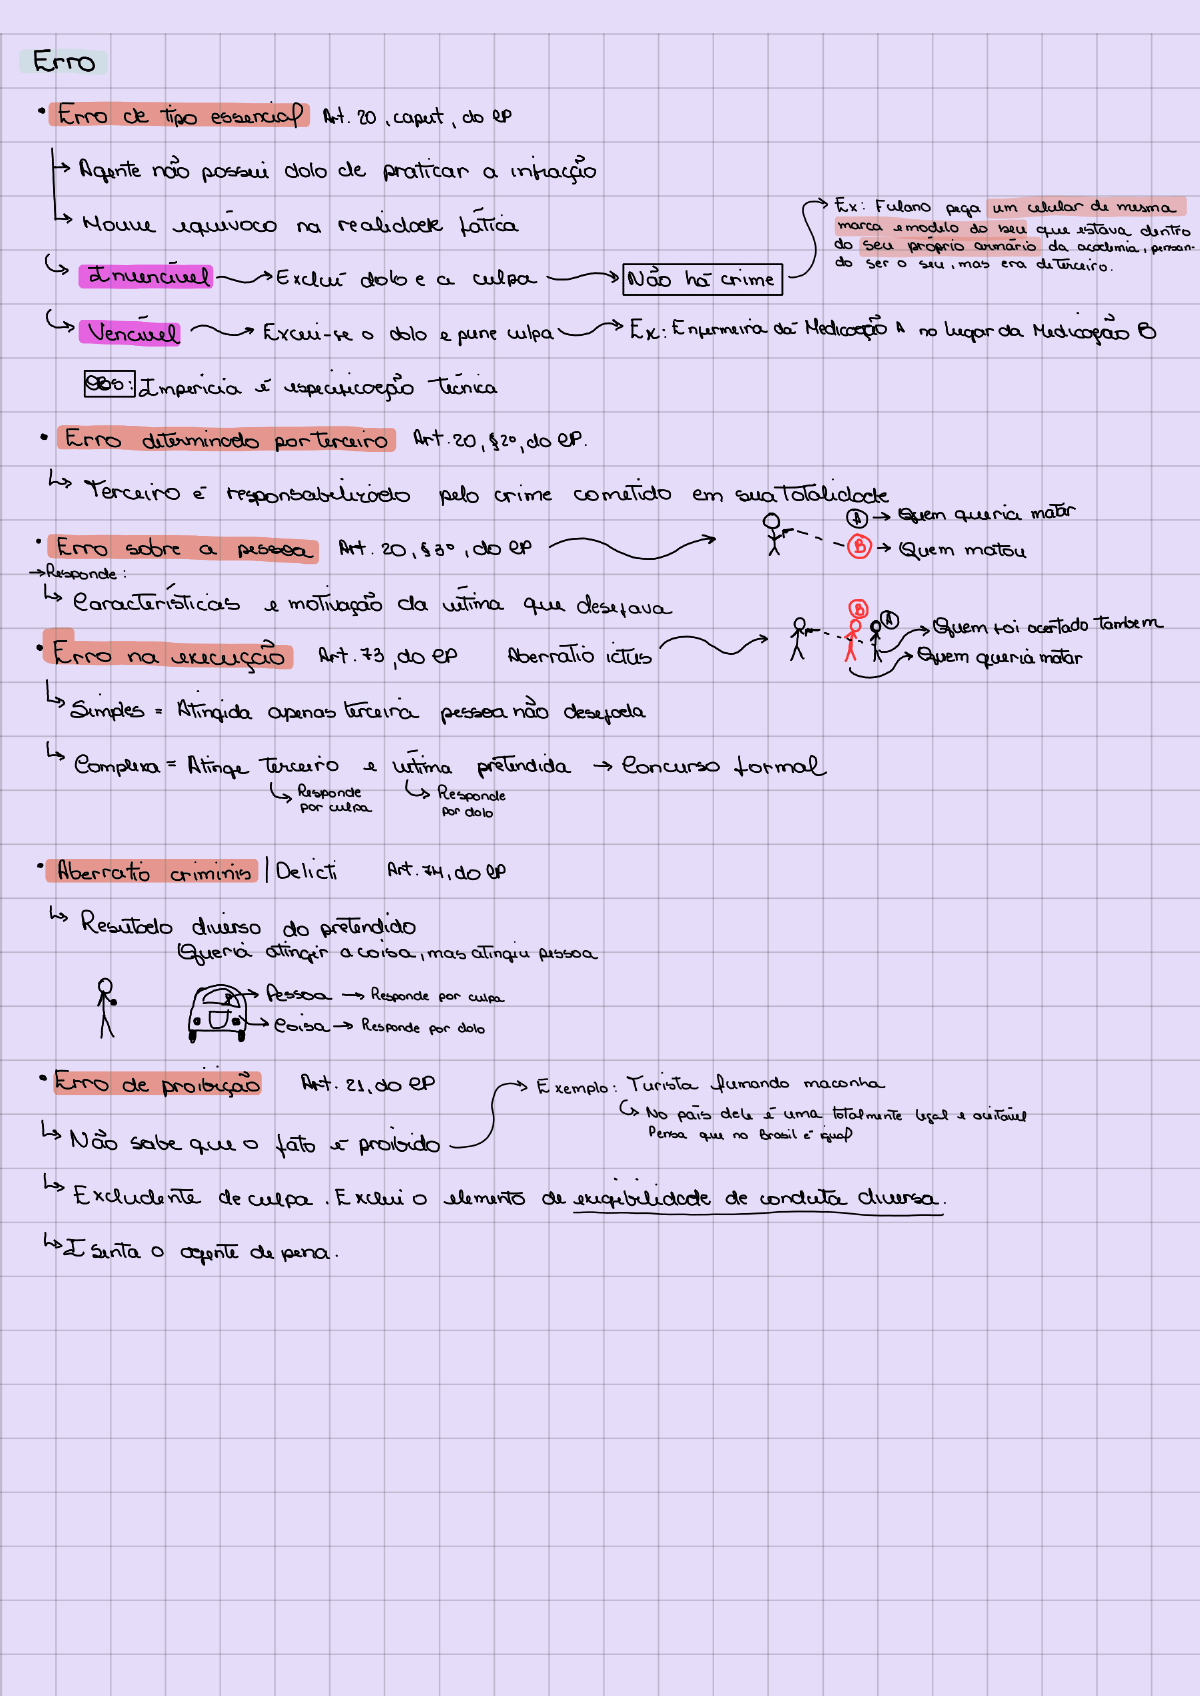 Erro
• Erro de tipo essencial Art. 20, caput, do CP
→ Agente não possui dolo de praticar a infração
→ Houve equívoco na realidade fática
Ex: Fulano pega um celular de mesma
marca e modelo do seu que estava dentro
do seu próprio armário da academia, pensan-
do ser o seu, mas era de terceiro.
↳ Invencível → Exclui dolo e a culpa → Não há crime
↳ Vencível → Exclui-se o dolo e pune culpa → Ex: Enfermeira da Medicação A no lugar da Medicação B
OBS: Imperícia é especificação técnica
• Erro determinado por terceiro Art. 20, §2º, do CP.
↳ Terceiro é responsabilizado pelo crime cometido em sua totalidade
A → Quem queria matar
• Erro sobre a pessoa Art. 20, §3º, do CP
B → Quem matou
→ Responde:
↳ Características e motivação da vítima que desejava
B
A → Quem foi acertado também
• Erro na execução Art. 73, do CP Aberratio ictus
→ Quem queria matar
↳ Simples = Atingida apenas terceira pessoa não desejada
↳ Complexa = Atinge terceiro e vítima pretendida → Concurso formal
↳ Responde ↳ Responde
por culpa por dolo
• Aberratio criminis | Delicti Art. 74, do CP
↳ Resultado diverso do pretendido
Queria atingir a coisa, mas atingiu pessoa
→ Pessoa → Responde por culpa
→ Coisa → Responde por dolo
• Erro de proibição Art. 21, do CP
→ Exemplo: Turista fumando maconha
↳ No país dele é uma totalmente legal e aceitável
Pensa que no Brasil é igual
↳ Não sabe que o fato é proibido
↳ Excludente de culpa. Exclui o elemento de exigibilidade de conduta diversa.
↳ Isenta o agente de pena.